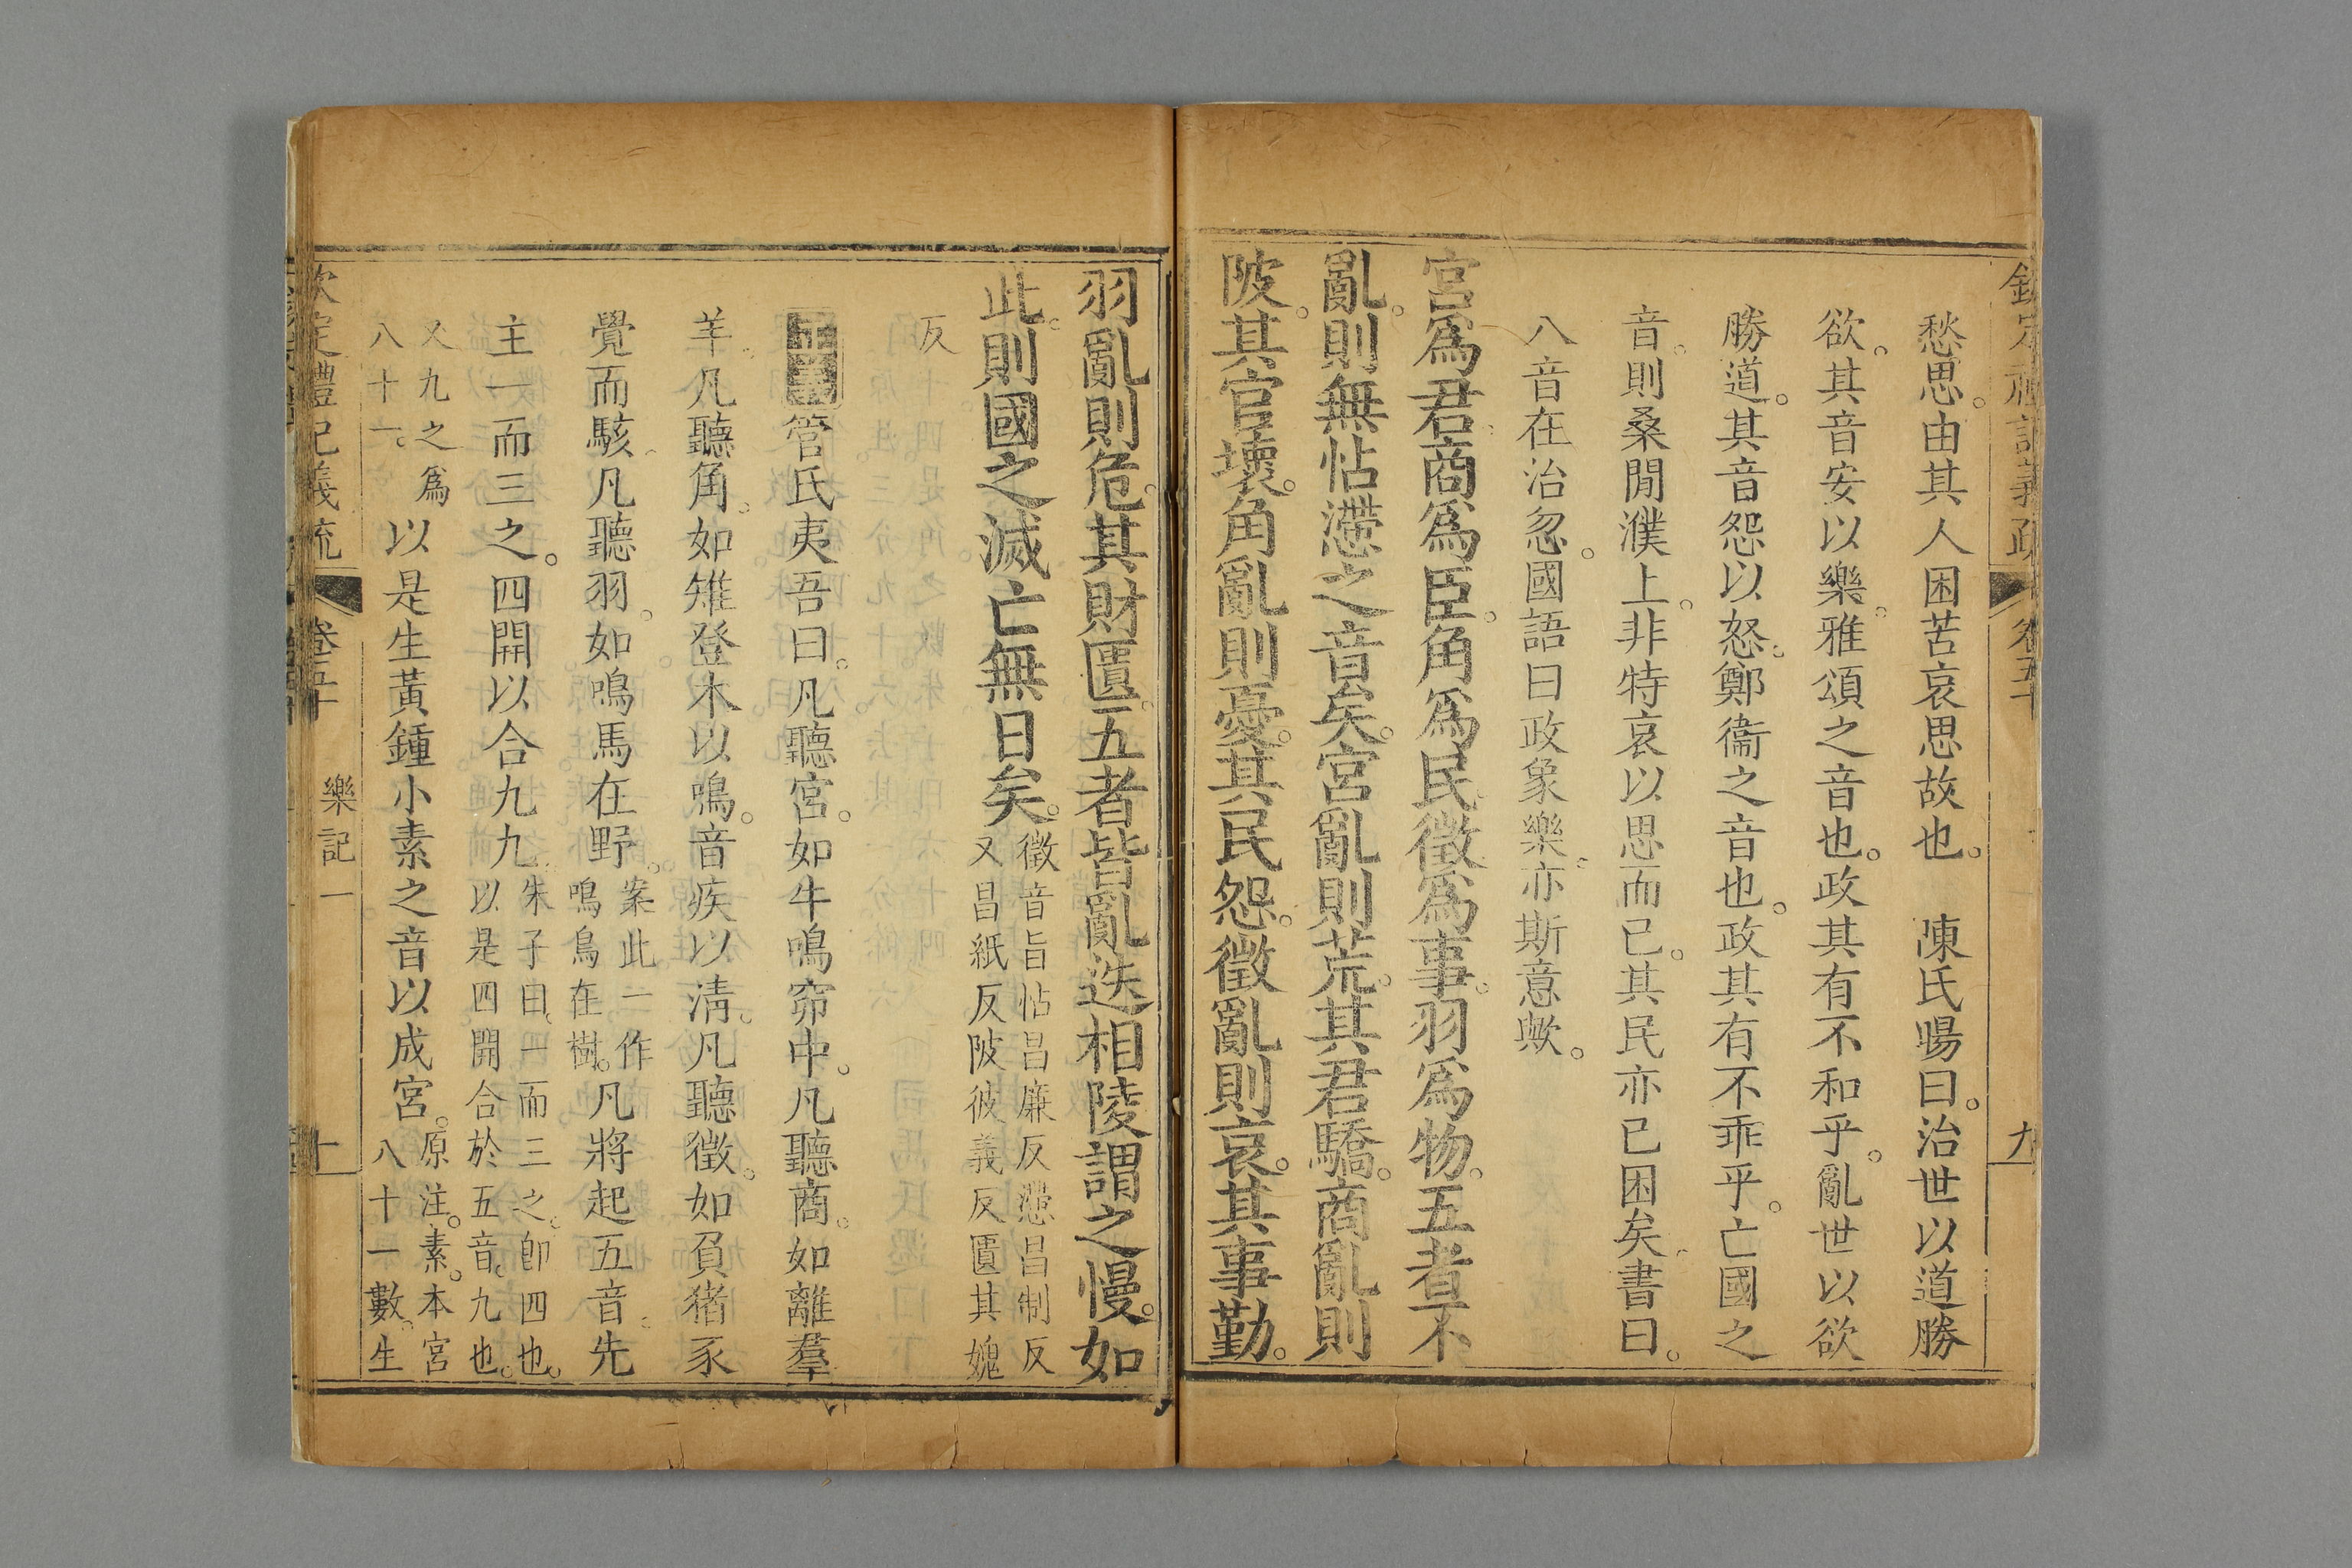 愁思。由其人困苦哀思故也。　陳氏暘曰。治世以道勝
欲。其音安以樂。雅頌之音也。政其有不和乎。亂世以欲
勝道。其音怨以怒。鄭衞之音也。政其有不乖乎。亡國之
音。則桑間濮上。非特哀以思而已。其民亦已困矣。書曰。
八音在治忽。國語曰政象樂。亦斯意歟。
宮爲君。商爲臣。角爲民。徵爲事。羽爲物。五者不
亂。則無怗懘之音矣。宮亂則荒。其君驕。商亂則
陂。其官壞。角亂則憂。其民怨。徵亂則哀。其事勤。
卷五十
九
羽亂則危。其財匱。五者皆亂。迭相陵。謂之慢。如
此。則國之滅亡無日矣。
徵音旨怗昌廉反懘昌制反
又昌紙反陂彼義反匱其媿
反
正義管氏夷吾曰。凡聽宮。如牛鳴窌中。凡聽商。如離羣
羊。凡聽角。如雉登木以鳴。音疾以淸。凡聽徵。如負豬豕
覺而駭。凡聽羽。如鳴馬在野。
案此一作
鳴鳥在樹。
凡將起五音。先
主一而三之。四開以合九九。
朱子曰。一而三之。卽四也。
以是四開合於五音。九也。
又九之爲
八十一。
以是生黃鍾小素之音以成宮。
原注。素。本宮
八十一數。生
欽定禮記義疏
卷五十
樂記一
十